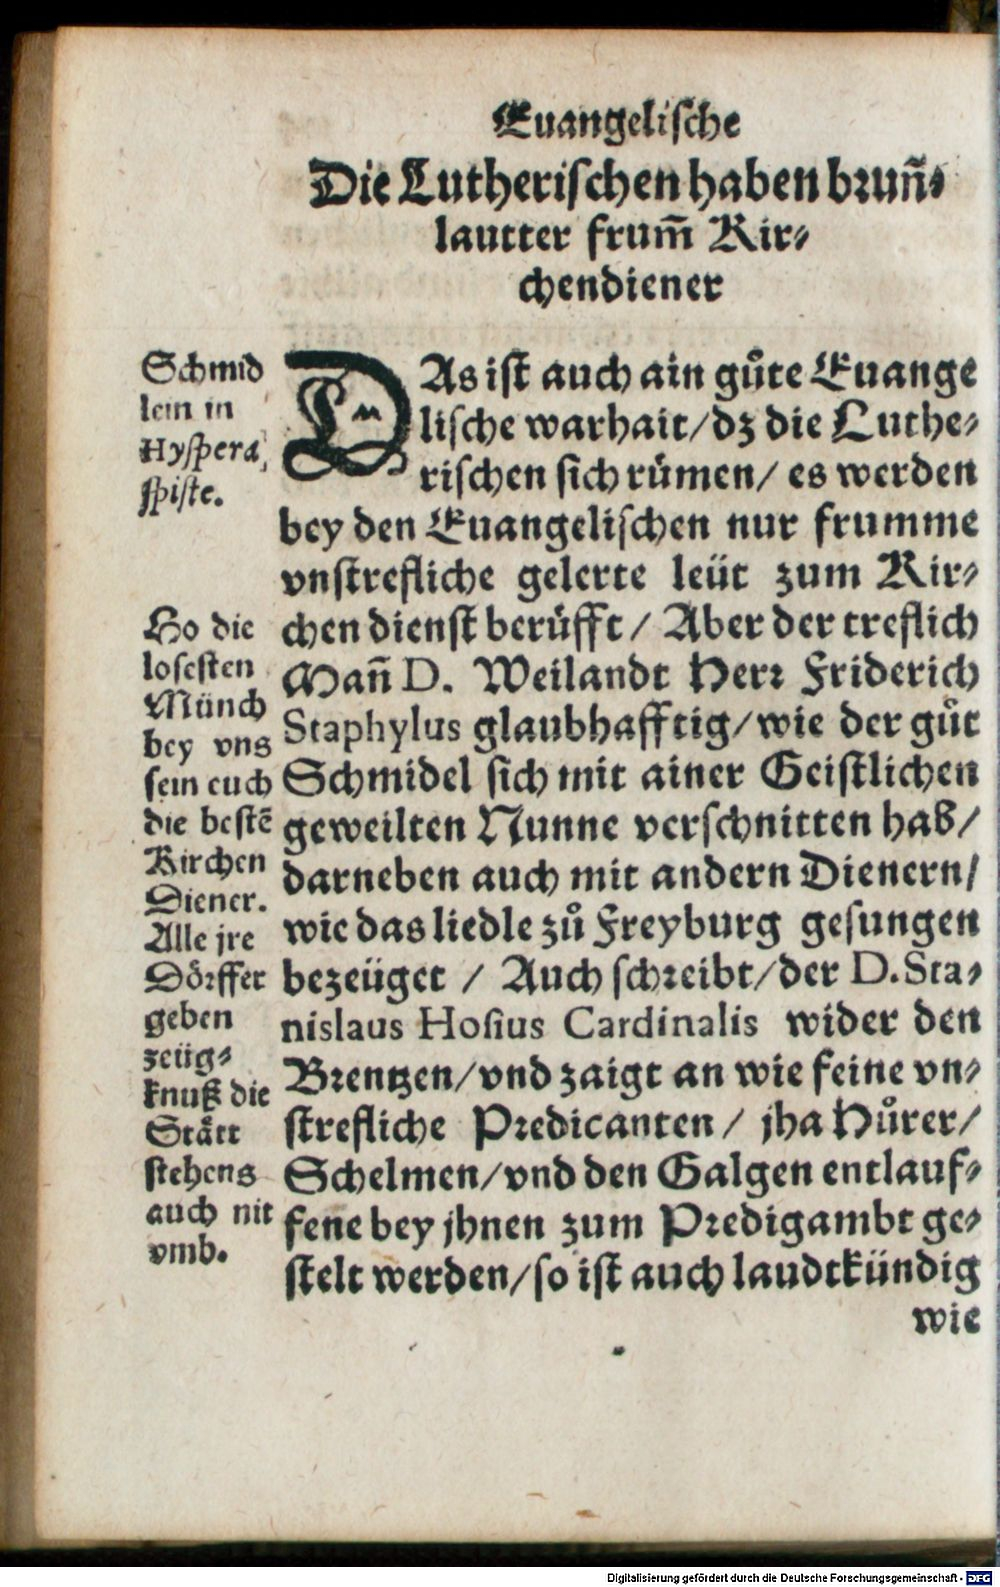 Euangelische
Die Lutherischen haben brun̄⸗
lautter frum̄ Kir⸗
chendiener
Schmid
lein in
Hyspera
spiste.
DAs ist auch ain gůte Euange
lische warhait/dz die Luthe⸗
rischen sich rümen/ es werden
bey den Euangelischen nur frumme
vnstrefliche gelerte leüt zum Kir⸗
chen dienst berüfft / Aber der treflich
Man̄ D. Weilandt Herr Friderich
Staphylus glaubhafftig/wie der gůt
Schmidel sich mit ainer Geistlichen
geweilten Nunne verschnitten hab/
darneben auch mit andern Dienern/
wie das liedle zů Freyburg gesungen
bezeüget / Auch schreibt/der D. Sta⸗
nislaus Hosius Cardinalis wider den
Brentzen/vnd zaigt an wie feine vn⸗
strefliche Predicanten / jha Hůrer/
Schelmen/vnd den Galgen entlauf⸗
fene bey jhnen zum Predigambt ge⸗
stelt werden/so ist auch laudtkündig
So die
losesten
Münch
bey vns
sein euch
die bestē
Kirchen
Diener.
Alle jre
Dörffer
geben
zeüg⸗
knuß die
Stätt
stehens
auch nit
vmb.
wie
Digitalisierung gefördert durch die Deutsche Forschungsgemeinschaft - DFG